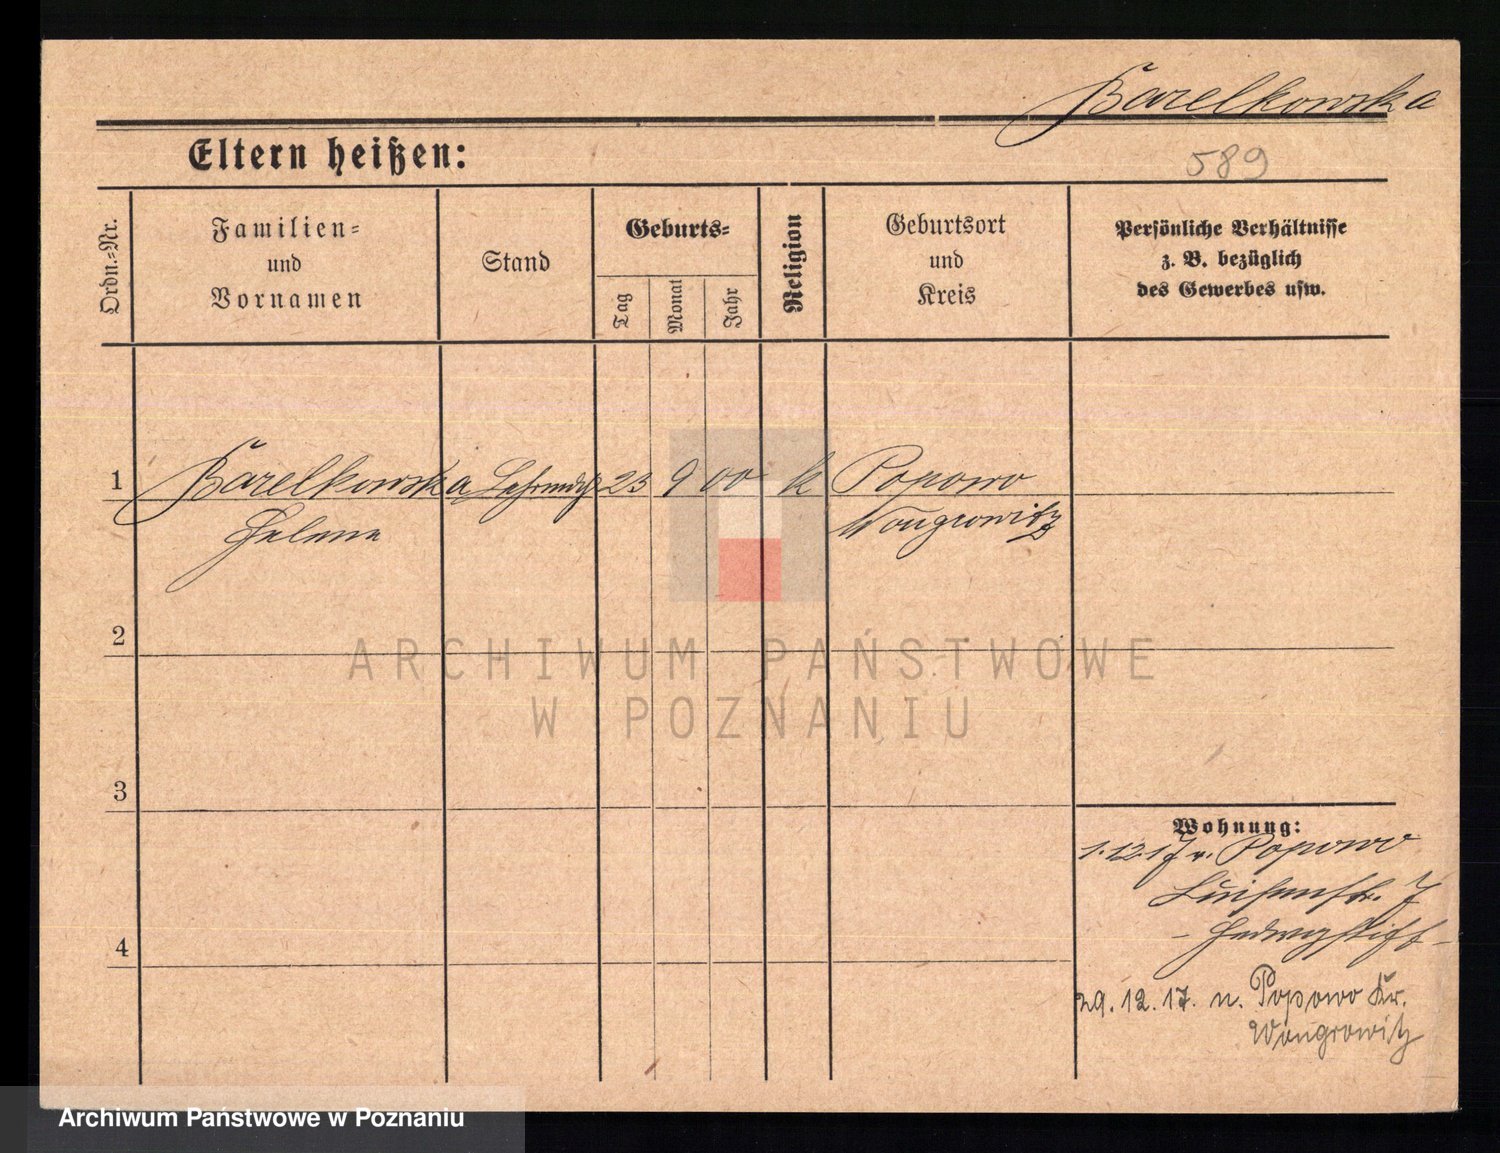 Barelkowska
Eltern heißen:
589
Ordn.-Nr.
Familien-
und
Vornamen
Stand
Geburts-
Tag
Monat
Jahr
Religion
Geburtsort
und
Kreis
Persönliche Verhältnisse
z. B. bezüglich
des Gewerbes usw.
1 Barelkowska 23 9 00 k Popowo
Helene Wongrowitz
2
3
4
Wohnung:
1.12.17 v. Popowo
Luisenstr. 7
- Hedwigstift -
29.12.17. n. Popowo Kr.
Wongrowitz
ARCHIWUM PAŃSTWOWE
W POZNANIU
Archiwum Państwowe w Poznaniu